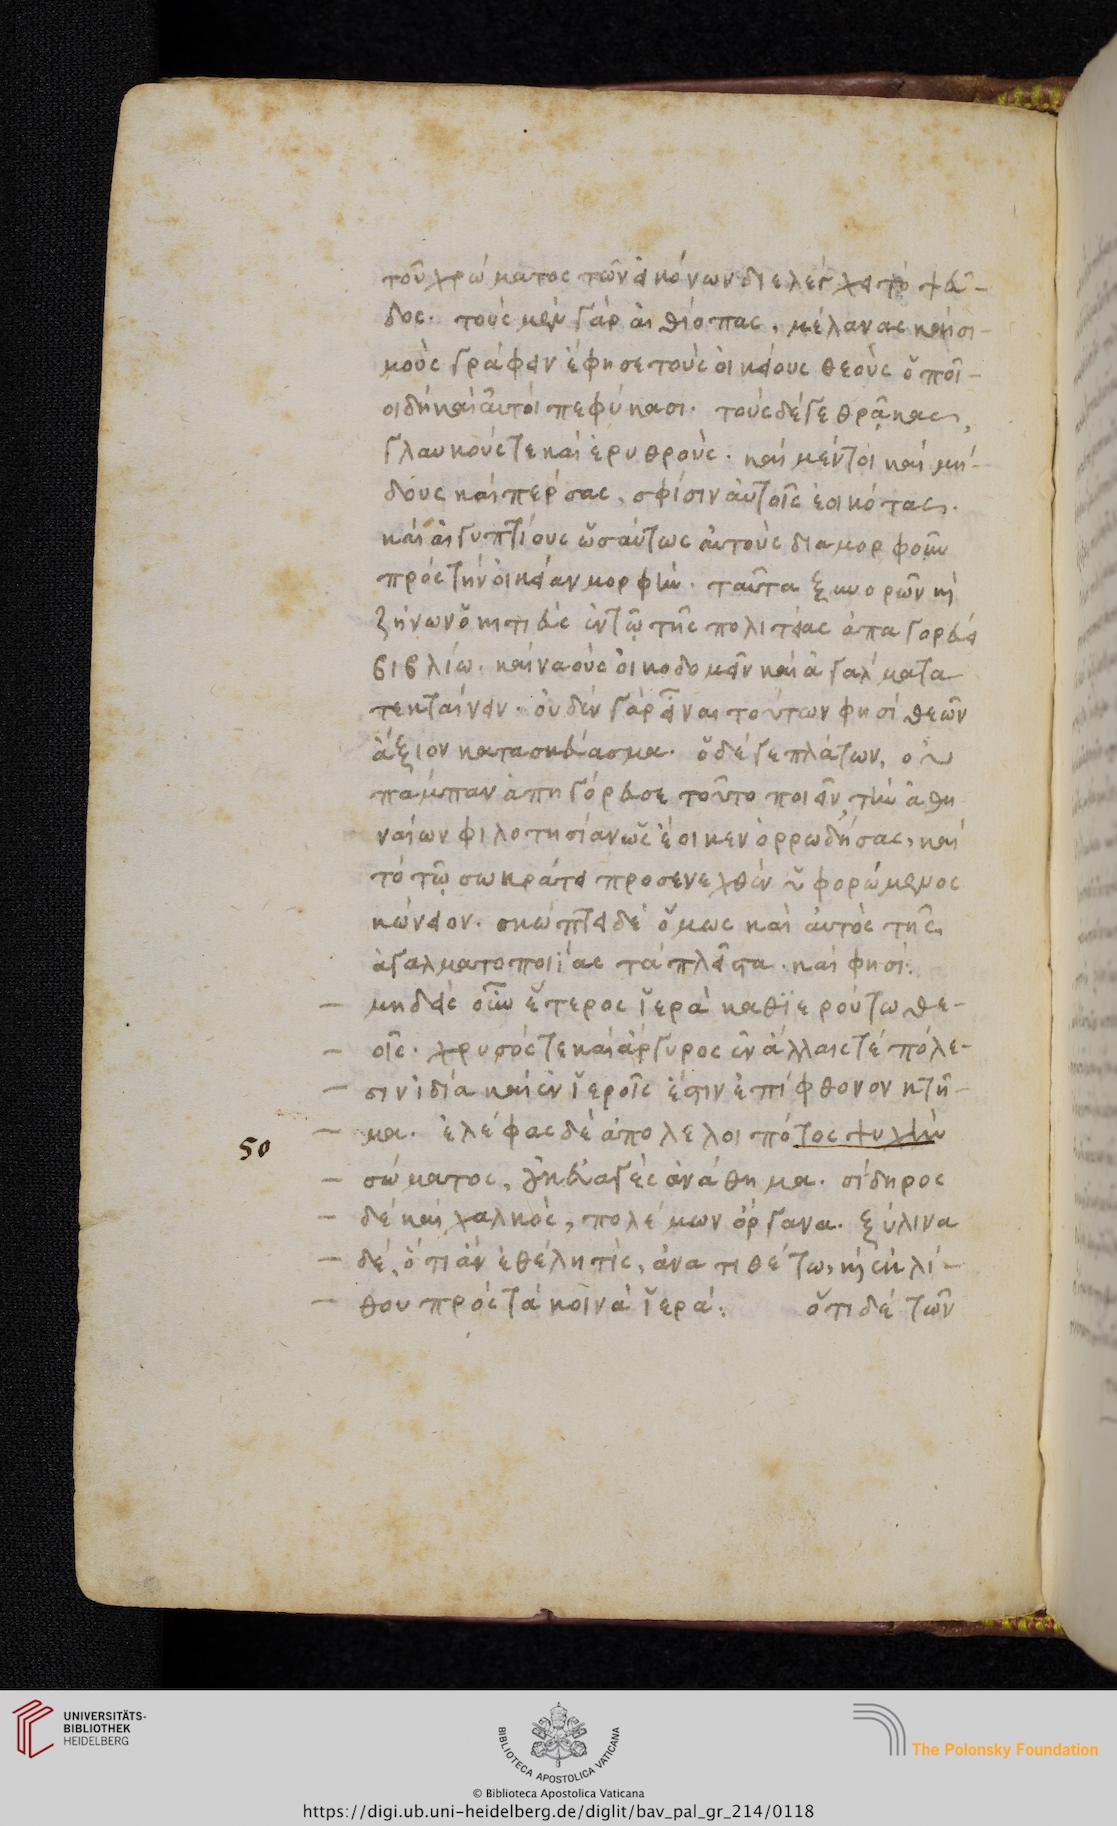 τοῦ χρώματος τῶν εἰκόνων διελέγχει τὸ ψεῦ-
δος. τοὺς μὲν γὰρ αἰθίοπας, μέλανας καὶ σι-
μοὺς γράφειν ἔφησε τοὺς οἰκείους θεοὺς ὁποῖ-
οι δὴ καὶ αὐτοὶ πεφύκασι. τοὺς δέ γε θρᾷκας,
γλαυκούς τε καὶ ἐρυθρούς. καὶ μέντοι καὶ μή-
δους καὶ πέρσας, σφίσιν αὐτοῖς ἐοικότας.
καὶ αἰγυπτίους ὡσαύτως αὐτοὺς διαμορφοῦν
πρὸς τὴν οἰκείαν μορφήν. ταῦτα ξυνορῶν κὶ
ζήνων ὁ κιτιεὺς ἐν τῷ τῆς πολιτείας ἀπαγορεύει
βιβλίω. καὶ ναοὺς οἰκοδομεῖν καὶ ἀγάλματα
τεκταίνειν. οὐδὲν γὰρ εἶναι τούτων φησὶ θεῶν
ἄξιον κατασκεύασμα. ὁ δέ γε πλάτων, οὐ
πάμπαν ἀπηγόρευσε τοῦτο ποιεῖν, τὴν ἀθη
ναίων φιλοτησίαν ὡς ἔοικεν ὀρρωδήσας, καὶ
τὸ τῷ σωκράτει προσενεχθὲν ὑφορώμενος
κώνειον. σκώπτει δὲ ὅμως καὶ αὐτὸς τῆς
ἀγαλματοποιΐας τὰ πλεῖστα. καὶ φησί.
μηδεὶς οὖν ἕτερος ἱερὰ καθϊερούτω θε-
οῖς. χρυσός τε καὶ ἄργυρος ἐν ἄλλαις τέ πόλε-
σιν ἰδία καὶ ἐν ἱεροῖς ἐστιν ἐπίφθονον κτῆ-
μα. ἐλέφας δὲ ἀπολελοιπότος ψυχὴν
50
σώματος, οὐκ εὐαγὲς ἀνάθημα. σίδηρος
δὲ καὶ χαλκός, πολέμων ὄργανα. ξύλινα
δέ, ὅτι ἂν ἐθέλη τίς, ἀνατιθέτω, κὶ ἐκ λί-
θου πρὸς τὰ κοινὰ ἱερά. ὅτι δὲ τῶν
UNIVERSITÄTS-
BIBLIOTHEK
HEIDELBERG
BIBLIOTECA APOSTOLICA VATICANA
The Polonsky Foundation
© Biblioteca Apostolica Vaticana
https://digi.ub.uni-heidelberg.de/diglit/bav_pal_gr_214/0118